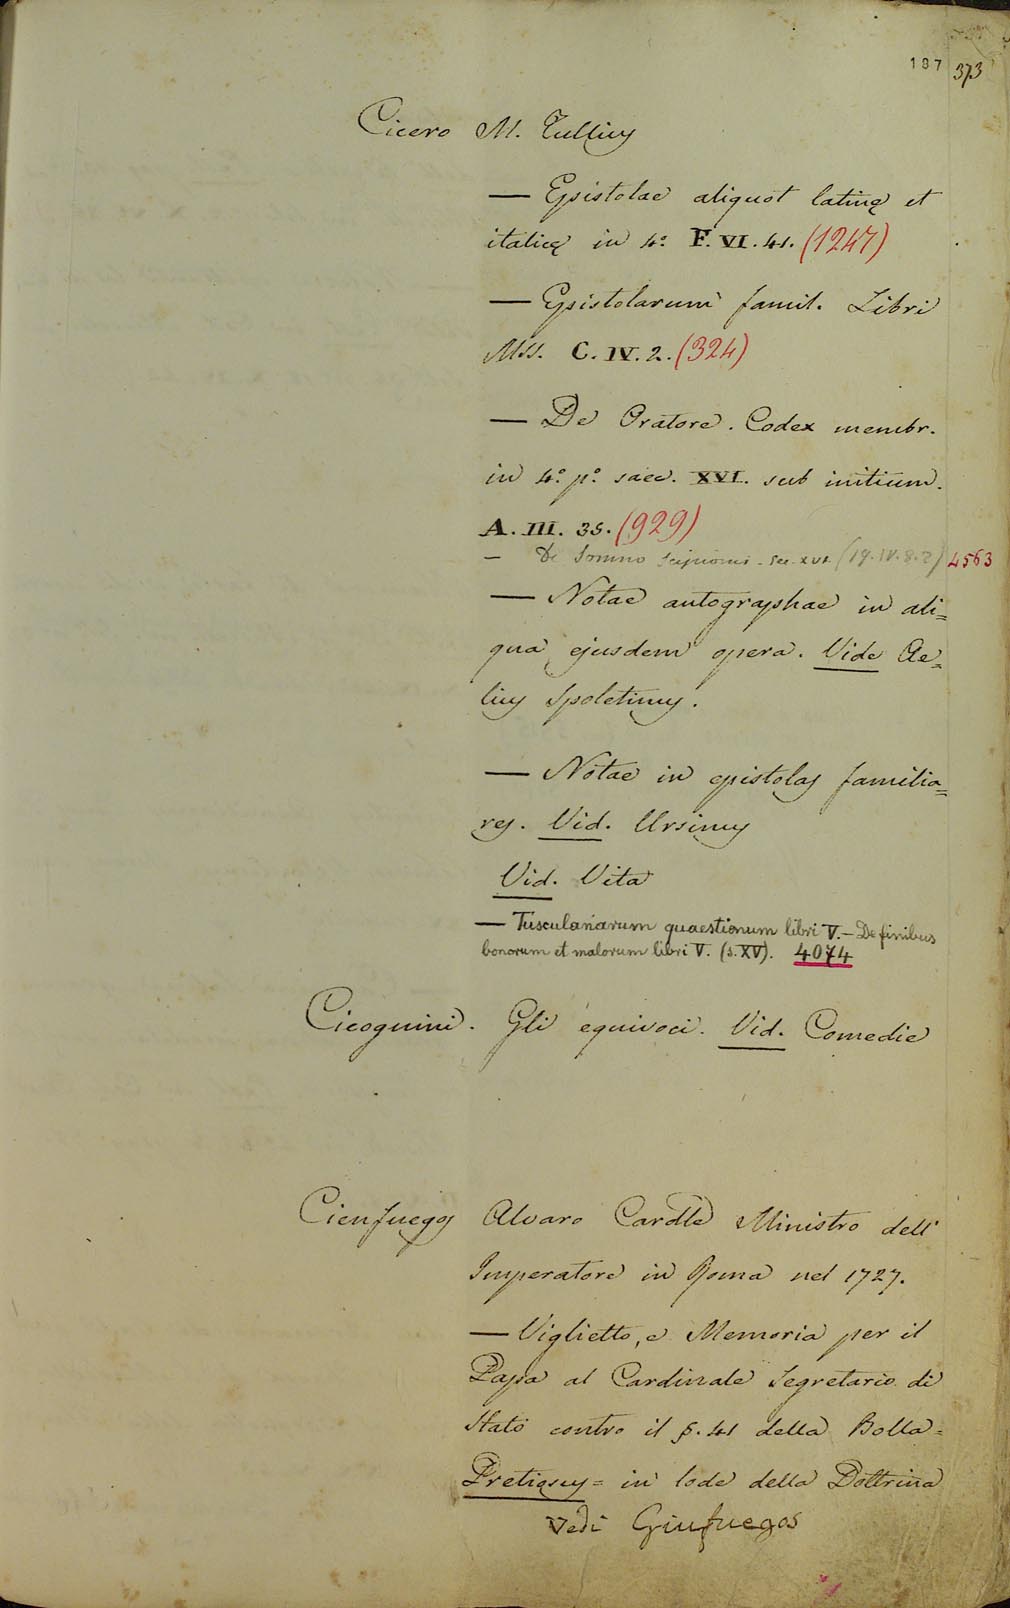 187 373
Cicero M. Tullius
— Epistolae aliquot latinę et
italicę in 4.º F. VI. 41. (1247)
— Epistolarum famil. Libri
Mss. C. IV. 2. (324)
— De Oratore. Codex membr.
in 4.º p.º saec. XVI. sub initium.
A. III. 35. (929)
— De Somno Scipionis - Sec. XVI (19. IV. 8. 2) 4563
— Notae autographae in ali=
qua ejusdem opera. Vide Ae=
lius Spoletinus.
— Notae in epistolas familia=
res. Vid. Ursinus
Vid. Vita
— Tusculanarum quaestionum libri V. — De finibus
bonorum et malorum libri V. (s. XV). 4074
Cicognini. Gli equivoci. Vid. Comedie
Cienfuegos Alvaro Cardle Ministro dell'
Imperatore in Roma nel 1727.
— Viglietto, e Memoria per il
Papa al Cardinale Segretario di
Stato contro il §. 41 della Bolla =
Pretiosus = in lode della Dottrina
Vedi Giufuegos